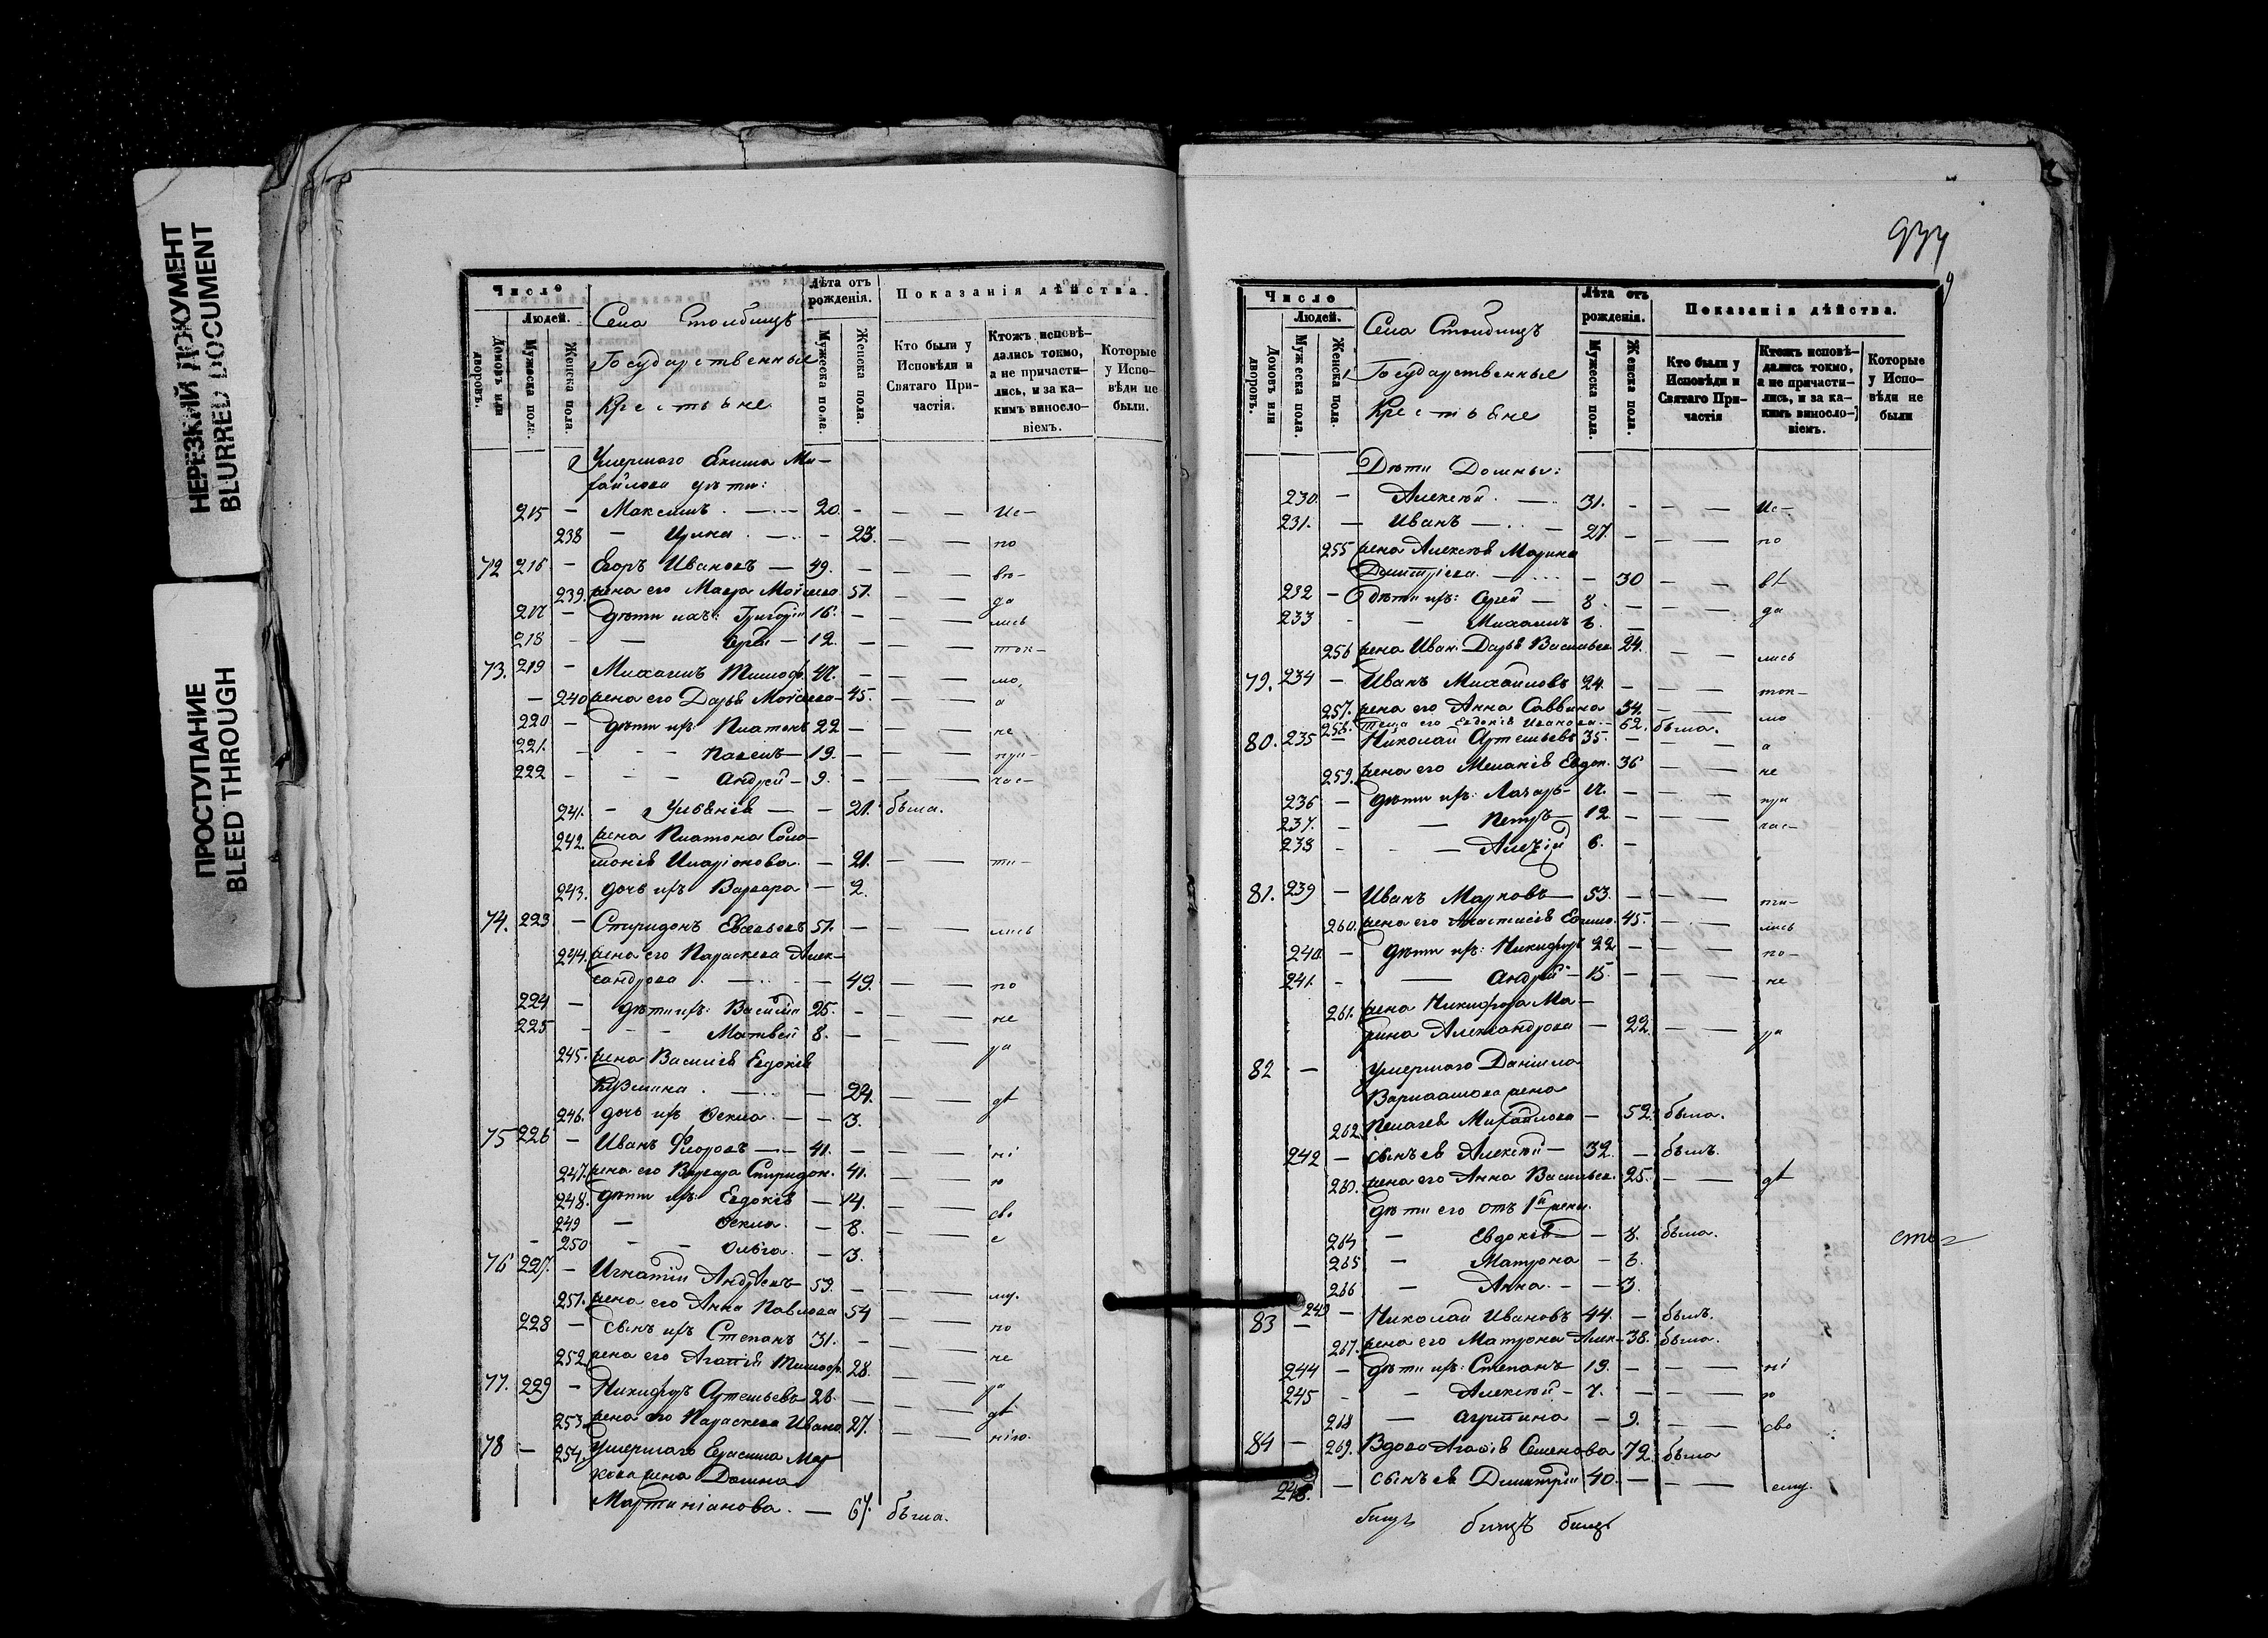 НЕРЕЗКИЙ ДОКУМЕНТ
BLURRED DOCUMENT
ПРОСТУПАНИЕ
BLEED THROUGH
Число
Людей.
Домовъ или дворовъ.
Мужеска пола.
Женска пола.
Села Столбищъ
Государственные
Крестьяне
Лѣта отъ рожденія.
Мужеска пола.
Женска пола.
Показанія дѣйства.
Кто были у Исповѣди и Святаго При-
частія.
Ктожъ исповѣ-
дались токмо,
а не причасти-
лись, и за ка-
кимъ виносло-
віемъ.
Которые
у Испо-
вѣди не
были.
Умершаго Екима Ми-
хайлова дѣти:
215 — Максимъ — 20. — — — Ис—
238 — Ирина — 23. — — по
72 216 — Егоръ Ивановъ — 49. — — — вѣ—
239. жена его Мавра Моисеева 51. — — да
217 — дѣти ихъ: Григорій 16. — — — лись
218 — Сергѣй — 12. — — — ток—
73. 219 — Михаилъ Тимоф. 47. — — — мо,
— 240 жена его Дарья Моисеева — 45. — — а
220 — дѣти ихъ: Платонъ 22 — — — не
221. — Павелъ — 19. — — — при—
222 — Андрей — 9. — — — час—
241. — Ульянія — 21. была.
242. жена Платона Соло-
монія Иларіонова. — 21. — — ти—
243. дочь ихъ Варвара — 2.
74. 223 — Спиридонъ Евсеевъ 51. — — — лись
244. жена его Параскева Алек-
сандрова — 49. — — по
224 — дѣти ихъ: Василій 25. — — — не
225 — Матвей 8. — — — ра
245. жена Василія Евдокія
Кузмина — 24. — — дѣ
246. дочь ихъ Ѳекла. — 3.
75 226 — Иванъ Ѳедоровъ — 41. — — — ні
247. жена его Варвара Спиридон. 41. — — ю
248. дѣти ихъ: Евдокія — 14. — — сво
249 — Ѳекла. — 8. — — е
250 — Ольга. — 3.
76 227. — Игнатій Андреевъ 53. — — — му.
251. жена его Анна Павлова 54 — — по
228 — сынъ ихъ Степанъ 31. — — — не
252 жена его Агапія Тимоф. 28. — — ра
77. 229 — Никифоръ Артемьевъ 26. — — — дѣ
253. жена его Параскева Ивано. 27. — — нію.
78 — 254. Умершаго Герасима Мар-
кова жена Домна
Мартиніанова. — 67. была.
Число
Людей.
Домовъ или дворовъ.
Мужеска пола.
Женска пола.
Села Столбищъ
Государственные
Крестьяне
Лѣта отъ рожденія.
Мужеска пола.
Женска пола.
Показанія дѣйства.
Кто были у Исповѣди и Святаго При-
частія
Ктожъ исповѣ-
дались токмо,
а не причасти-
лись, и за ка-
кимъ виносло-
віемъ.
Которые
у Испо-
вѣди не
были
Дѣти Домны:
230. — Алексѣй. — 31. — — — Ис—
231. — Иванъ — 27. — — — по
255 жена Алексѣя Марина
Дмитріева. — 30 — — вѣ
232 — дѣти ихъ: Сергѣй — 8. — — — да
233 — Михаилъ 6. —
256 жена Иван. Дарья Васильев. 24. — — лись
79. 234 — Иванъ Михайловъ 24. — — — ток—
257. жена его Анна Саввина 34. — — мо
258. теща его Евдокія Иванова. — 62. была.
80. 235 — Николай Артемьевъ 35. — — а
259. жена его Меланія Евдок. 36 — — не
236 — дѣти ихъ: Лазарь — 17. — — — при
237. — Петръ — 12 — — — час—
238 — Алексій 6. —
81. 239 — Иванъ Марковъ — 53. — — — ти—
260. жена его Анастасія Ефимо. 45. — — лись
240. — дѣти ихъ: Никифоръ 22 — — — по—
241. — Андрей — 15 — — — не
261. жена Никифора Ма-
рина Александрова — 22. — — ра
82 — Умершаго Даніила
Варлаамова жена
262. Пелагея Михайлова — 52. была.
242 — сынъ ея Алексѣй — 32. — былъ.
263. жена его Анна Васильев. 25. — — дѣ
дѣти его отъ 1й жены.
264 — Евдокія — 8. была.
265 — Матрона — 6.
266 — Анна. — 3.
83 243 — Николай Ивановъ 44. — былъ.
267. жена его Матрона Алек— 38. была.
244 — дѣти ихъ: Степанъ 19. — — — ні
245 — Алексѣй — 7. — — — ю
268 — Агрипина — 9. — — сво
84 — 269. Вдова Агафія Семенова. 72. была
246. — сынъ ея Димитрій 40. — — — ему.
бищъ бищъ бищъ